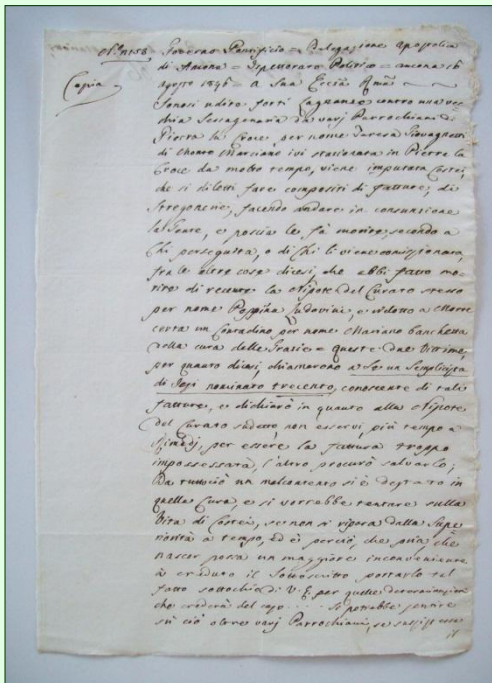 N.° 1158 Governo Pontificio = Delegazione Apostolica
di Ancona = Ispettorato Politico = Ancona 16
Copia Agosto 1846 = A Sua Eccza Rma
Sonosi udite forti lagnanze contro una vec
chia Sessagenaria da varj Parrochiani di
Pietra la Croce per nome Teresa
di Monte Marciano ivi stazionata in Pietra la
Croce da molto tempo, viene imputata Costei,
che si diletti fare compositi di fatture, di
Stregonerie, facendo andare in consunzione
la Gente, e poscia le fà morire, secondo a
chi perseguita, o di chi li viene commissionata,
fra le altre cose dicesi, che abbi fatto mo
rire di recente la Nipote del Curato stesso
per nome Peppina, e ridotto a Morte
certa un Contadino per nome Mariano Banchetta
della cura delle Grazie e queste due Vittime,
per quanto dicesi, chiamarono a Se un Semplicista
di Jesi nominato trecento, conoscente di tale
fatture, e dichiarò in quanto alla Nipote
del Curato sudetto non esservi più tempo a
Rimedj, per essere la fattura troppo
impossessata, l'altro procurò salvarlo;
Da tutto ciò un malcontento si è destato in
quella Cura, e si vorrebbe tentare sulla
Vita di Costei, se non si ripara dalla Supe
riorità a tempo, ed è perciò, che pria, che
nascer possa un maggiore inconveniente
à creduto il Sottoscritto portarlo tal
fatto sottochio di V. E. per quelle determinazioni
che crederà del caso . . . . Si potrebbe sentire
su ciò oltre varj Parrochiani, se sussistesse
il